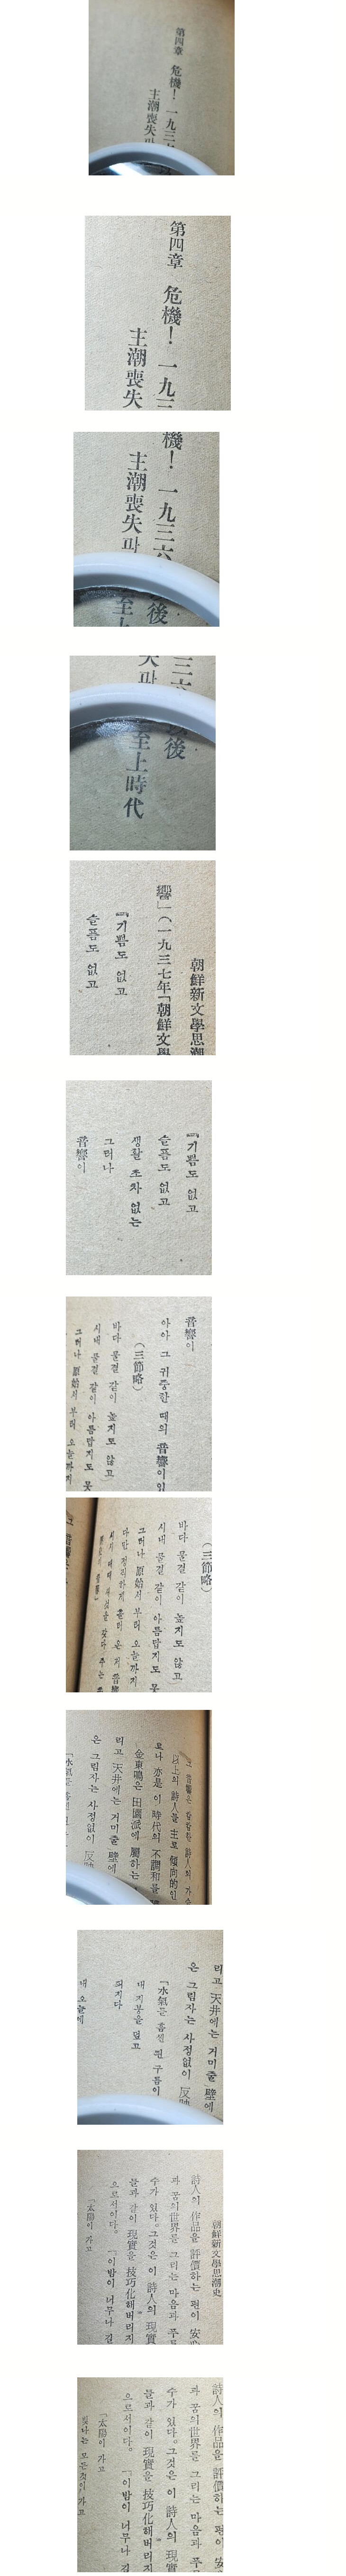 第四章 危機! 一九三
主潮喪失파
第四章 危機! 一九三
主潮喪失
機! 一九三六
後
主潮喪失파
至上
後
至上時代
朝鮮新文學思潮
響」(一九三七年「朝鮮文學
『기쁨도 없고
슬픔도 없고
『기쁨도 없고
슬픔도 없고
생활 조차 없는
그러나
音響이
音響이
아아 그 귀중한 때의 音響이 있
(三節略)
바다 물결 같이 높지도 않고
시내 물결 같이 아름답지도 못
그러나 原始서 부터 오늘까지
(三節略)
바다 물결 같이 높지도 않고
시내 물결 같이 아름답지도 못
그러나 原始서 부터 오늘까지
以上의 詩人을 主로 傾向的인
나 亦是 이 時代의 不調和를
金東鳴은 田園派에 屬하는
리고 天井에는 거미줄 壁에
은 그림자는 사정없이 反映
「水氣를 흠씬
리고 天井에는 거미줄 壁에
은 그림자는 사정없이 反映
「水氣를 흠씬 된 구름이
내 지붕을 덮고
퍼지다
내 오늘에
朝鮮新文學思潮史
詩人의 作品을 評價하는 편이 安
과 꿈의世界를 그리는 마음과 푸
수가 있다。그것은 이 詩人의 現實
들과 같이 現實을 技巧化해버리지
으로서이다。 「이밤이 너무나 길
「太陽이 가고
詩人의 作品을 評價하는 편이 安
과 꿈의世界를 그리는 마음과 푸
수가 있다。그것은 이 詩人의 現實
들과 같이 現實을 技巧化해버리지
으로서이다。 「이밤이 너무나 길
「太陽이 가고
빛나는 모든것이 가고